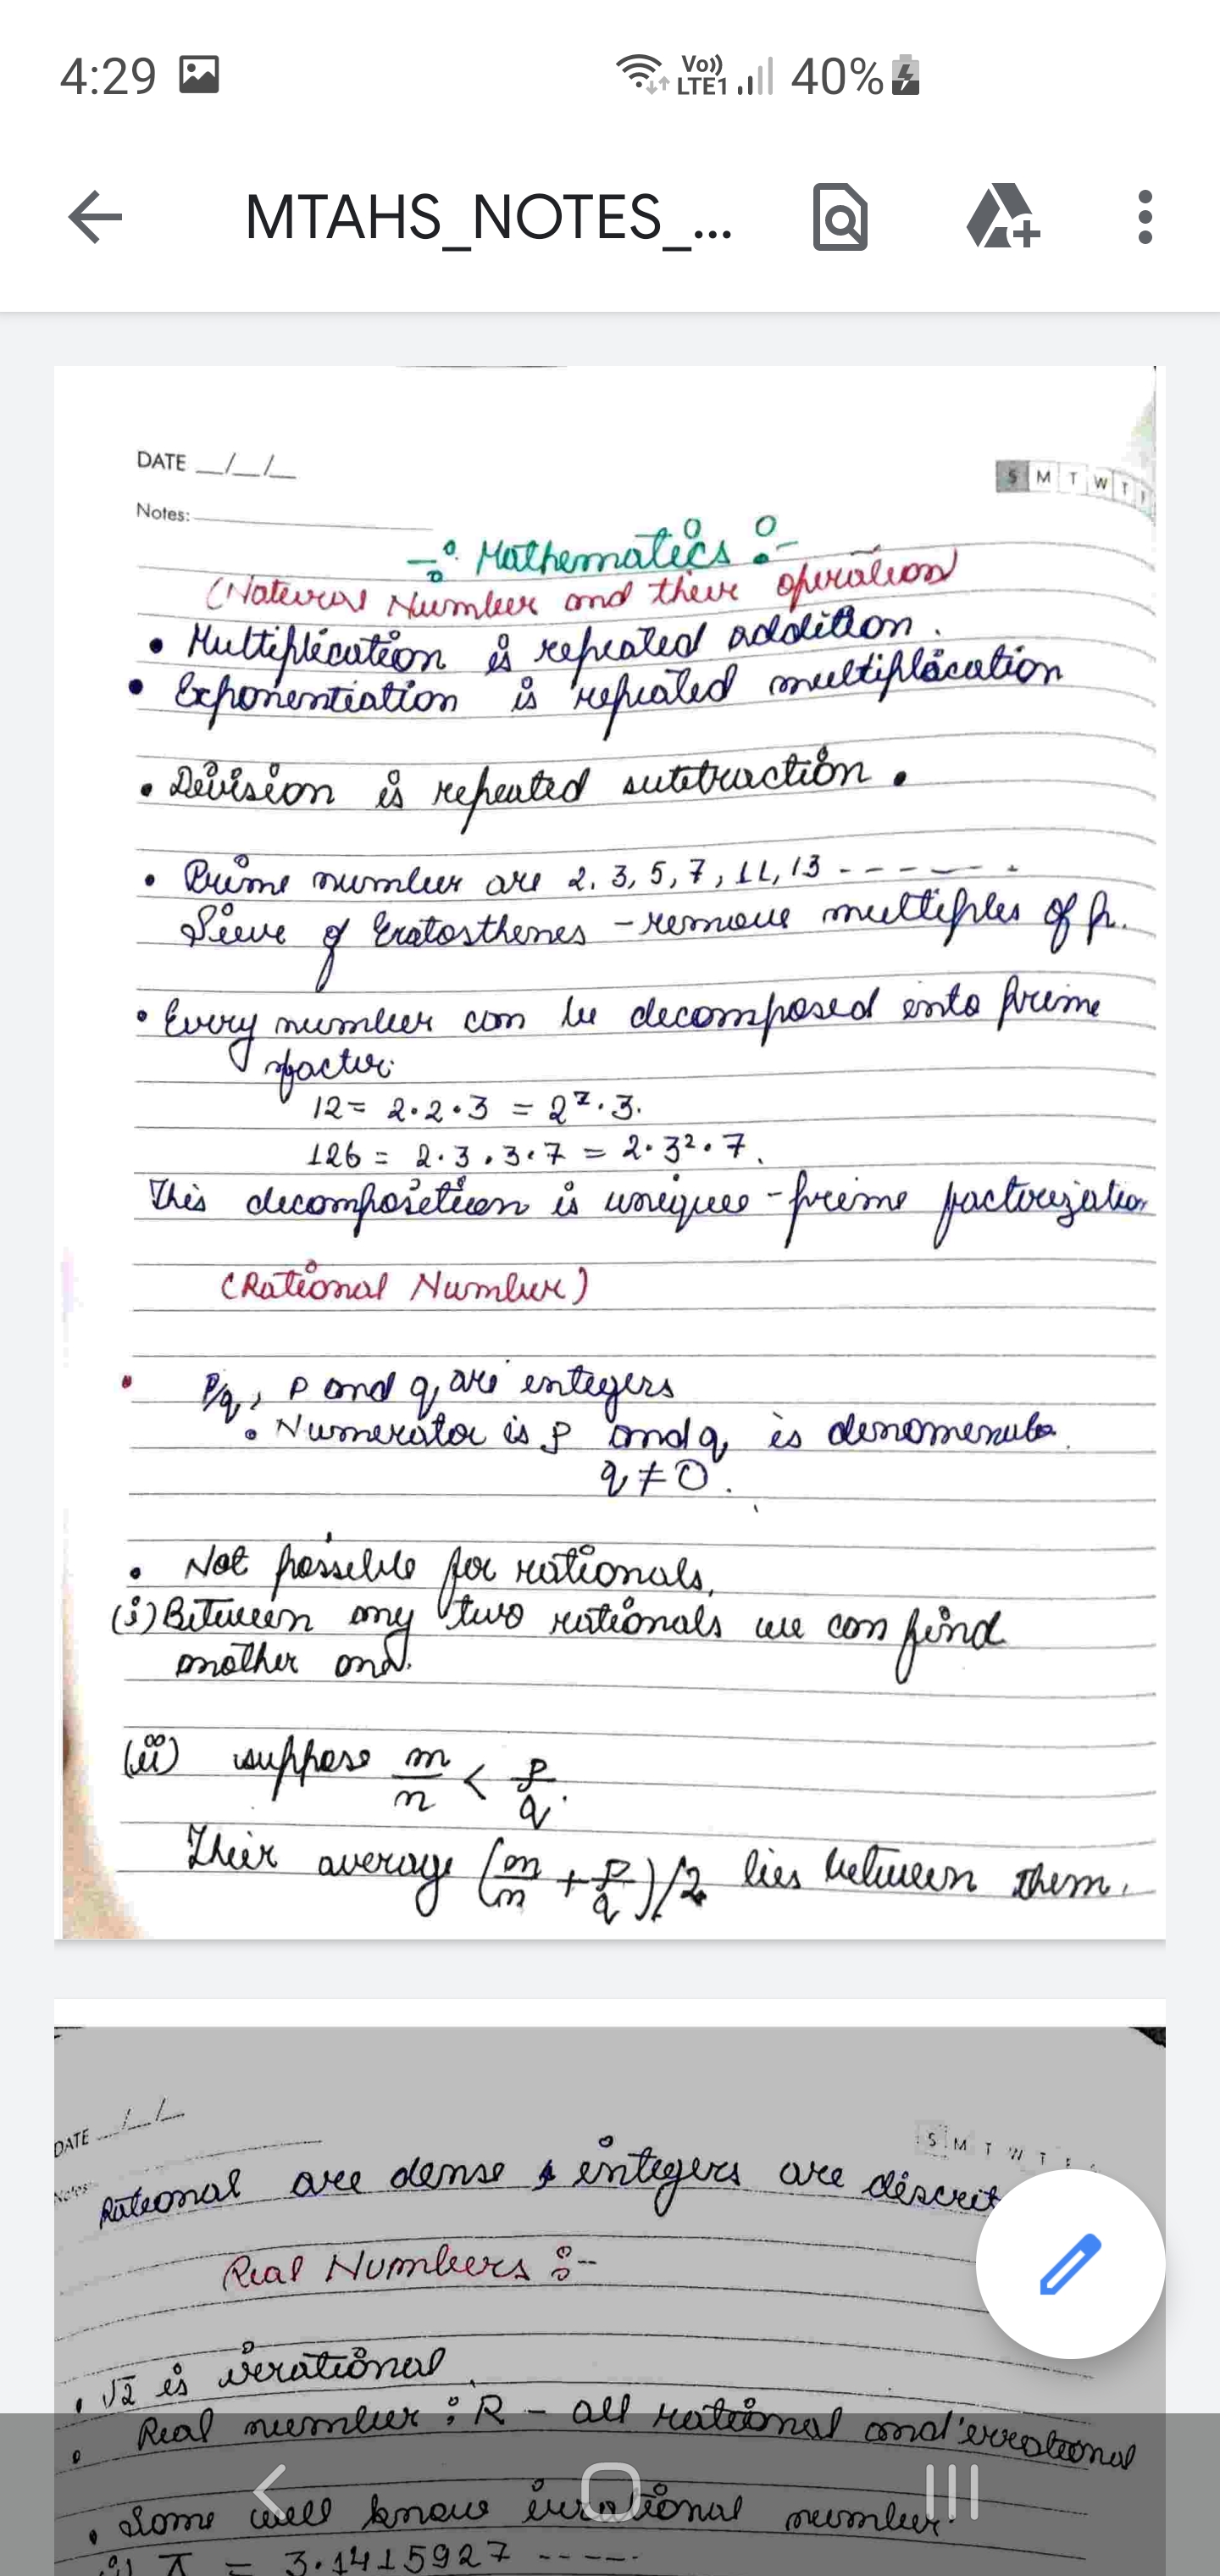 4:29
Vo)) LTE1 40%
MTAHS_NOTES_...
DATE __/__/__
S M T W T
Notes:
Mathematics :-
(Natural Number and their operation)
• Multiplication is repeated addition.
• Exponentiation is repeated multiplication
• Division is repeated subtraction.
• Prime number are 2, 3, 5, 7, 11, 13 ------
Sieve of Eratosthenes - remove multiples of p.
• Every number can be decomposed into prime
factor.
12 = 2·2·3 = 2²·3.
126 = 2·3·3·7 = 2·3²·7.
This decomposition is unique - prime factorization
(Rational Number)
• P/q, p and q are integers
• Numerator is p and q is
q ≠ 0.
• Not possible for rationals,
(i) Between any two rationals we can find
another
(ii) suppose m/n < p/q.
Their average (m/n + p/q)/2 lies between them.
DATE __/__/__
S M T W T
Notes:
Rational are dense, integers are discrit
Real Numbers :-
• √2 is irrational
• Real number : R - all rational and irrational
• Some well know irrational number.
π = 3.1415927 -----